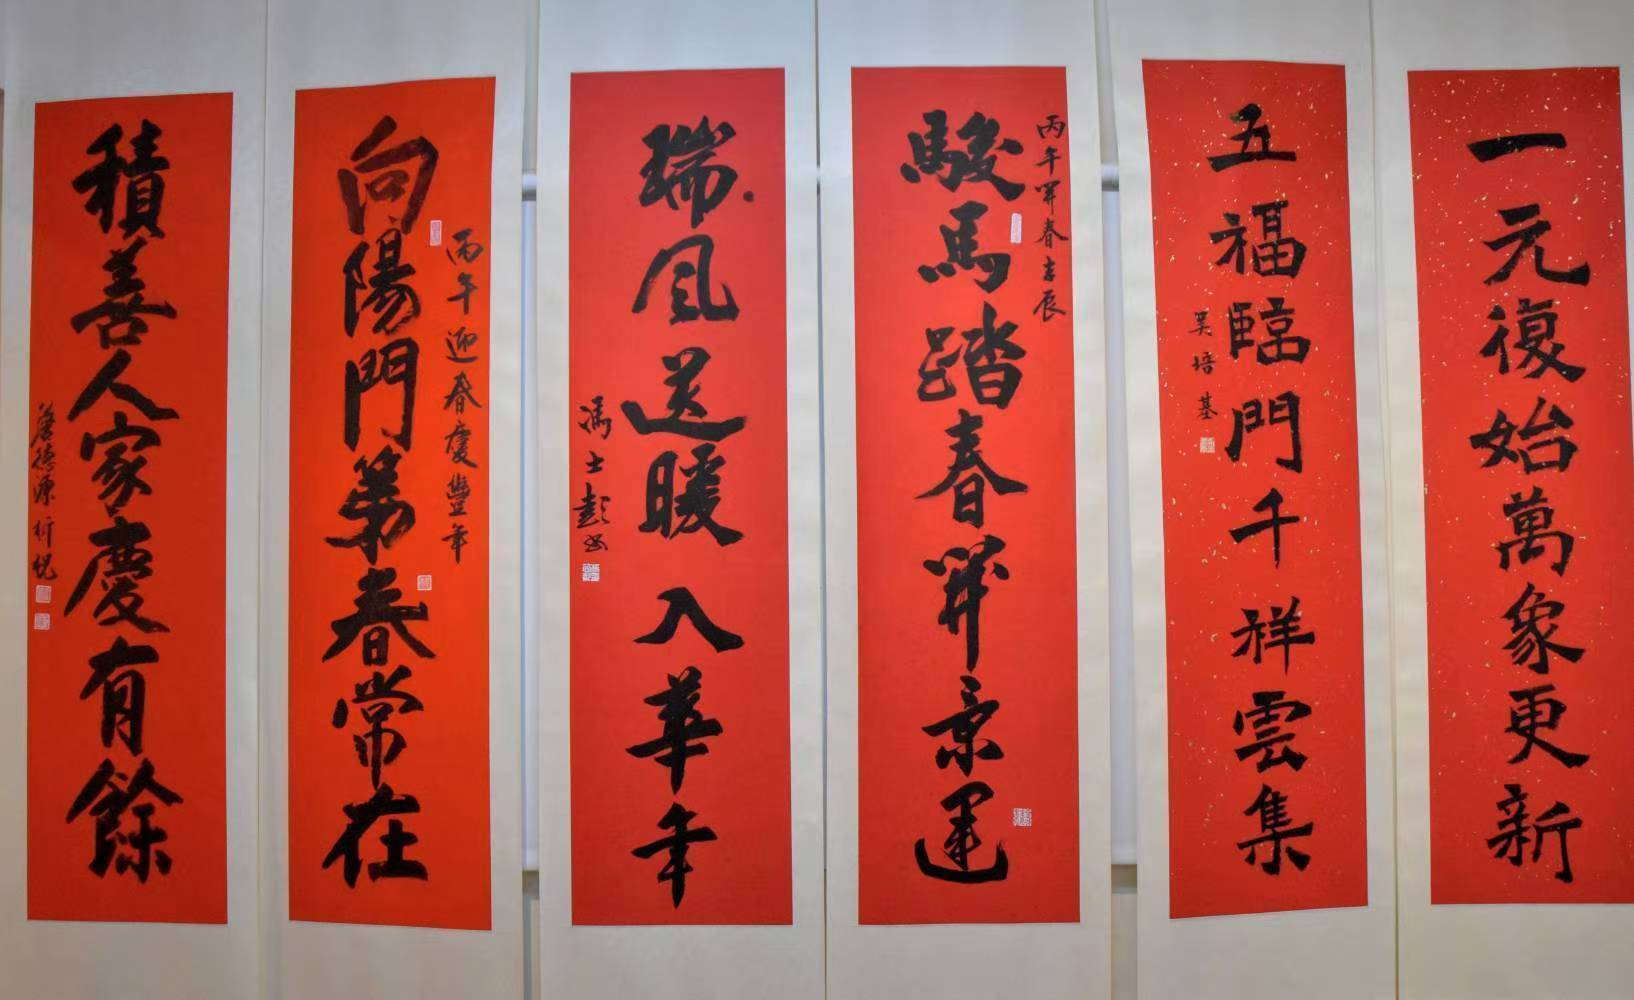 一元復始萬象更新
五福臨門千祥雲集
吴培基
丙午開春吉辰
駿馬踏春開景運
瑞風送暖入華年
馮士彭書
丙午迎春慶豐年
向陽門第春常在
積善人家慶有餘
詹德源